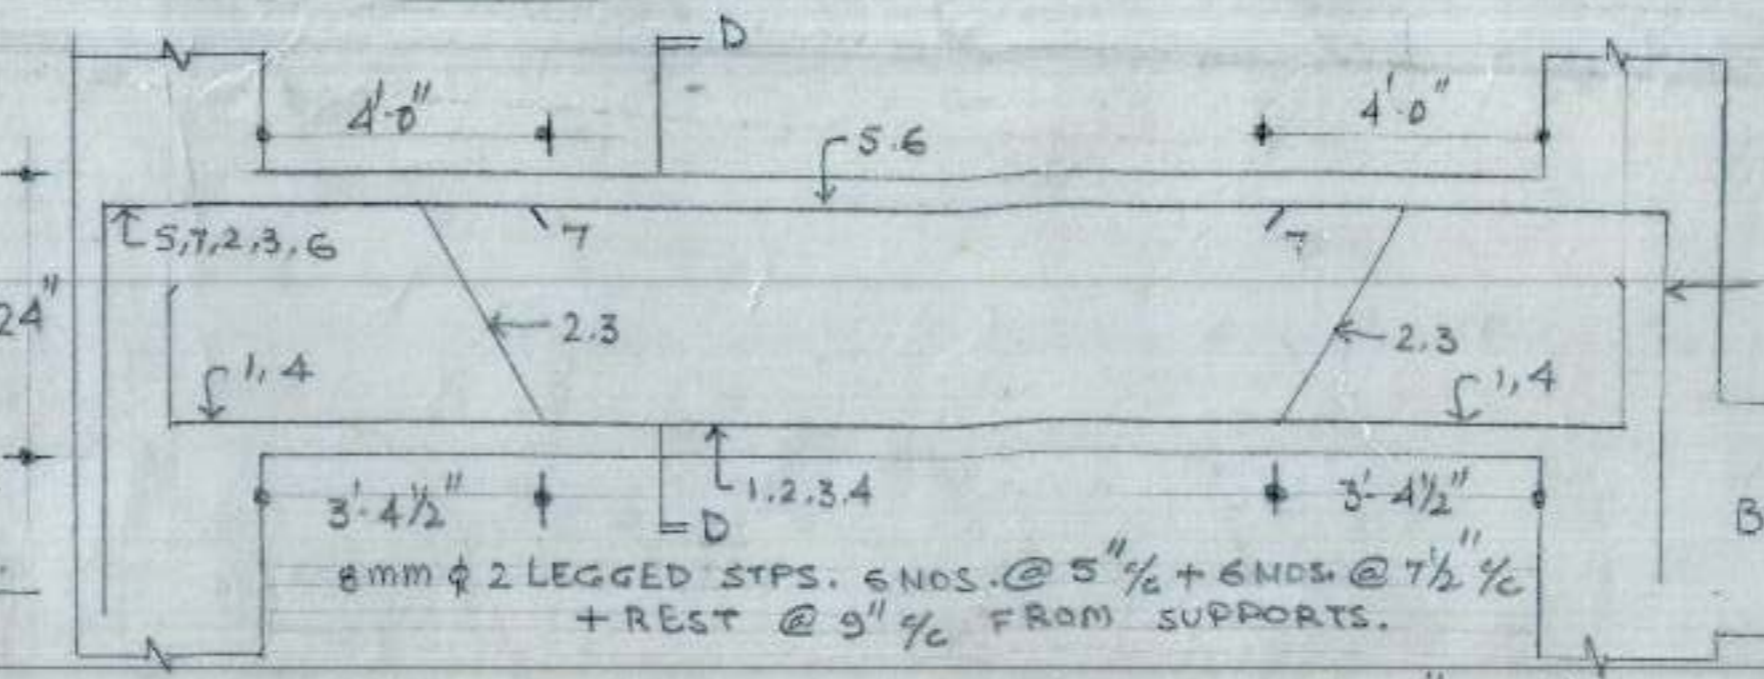 D
4'-0"
4'-0"
5.6
5,7,2,3,6
7
7
24"
2.3
2.3
1,4
1,4
1.2.3.4
3'-4½"
3'-4½"
D
B
8mm ϕ 2 LEGGED STPS. 6 NOS. @ 5" c/c + 6 NOS. @ 7½" c/c
+ REST @ 9" c/c FROM SUPPORTS.